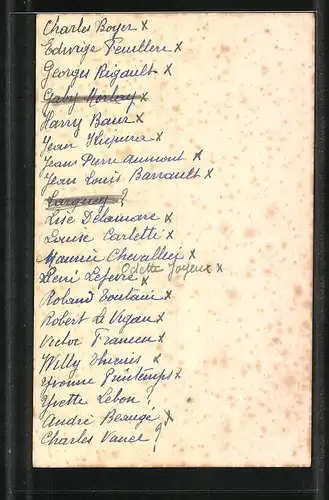 Charles Boyer x
Edwige Feuillere x
Georges Rigault x
Gaby Morlay x
Harry Baur x
Jean Kiepura x
Jean Pierre Aumont x
Jean Louis Barrault x
Larquey ?
Lise Delamare x
Louise Carletti x
Maurice Chevallier x
Odette Joyeux x
René Lefevre x
Roland Toutain x
Robert Le Vigan x
Victor Francen x
Willy x
Yvonne Printemps x
Yvette Lebon ?
André Beauge x
Charles Vanel ?